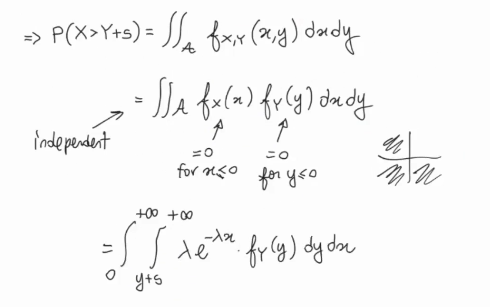 => P(X>Y+s) = ∬_A f_{X,Y}(x,y) dxdy
= ∬_A f_X(x) f_Y(y) dxdy
independent
=0 =0
for x≤0 for y≤0
= ∫_0^{+∞} ∫_{y+s}^{+∞} λe^{-λx} · f_Y(y) dydx